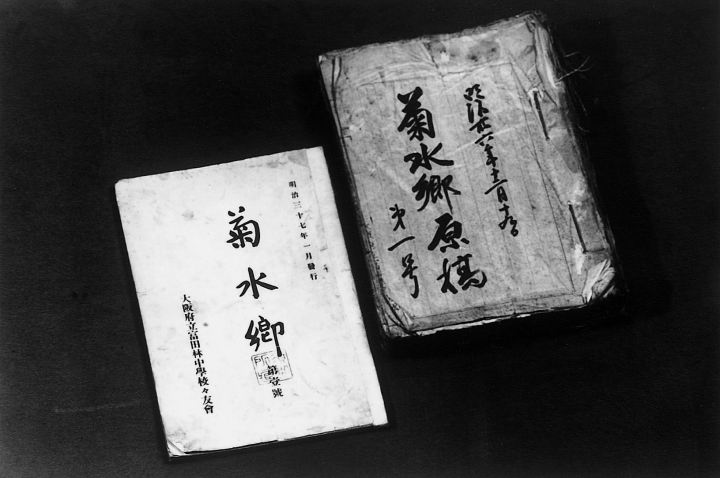 明治三十七年一月發行
菊水郷
第壹號
大阪府立富田林中學校々友會
明治卅六年十二月
菊水郷原稿
第一号